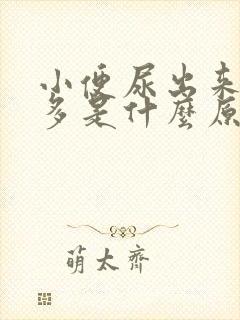 小便尿出来
多是什麼原
萌太齊